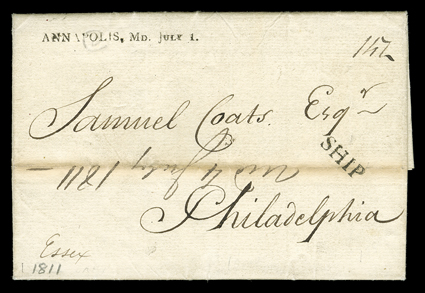 ANNAPOLIS, MD. JULY 1.
Samuel Coats. Esqr
SHIP
July 1811
Philadelphia
Essex
1811